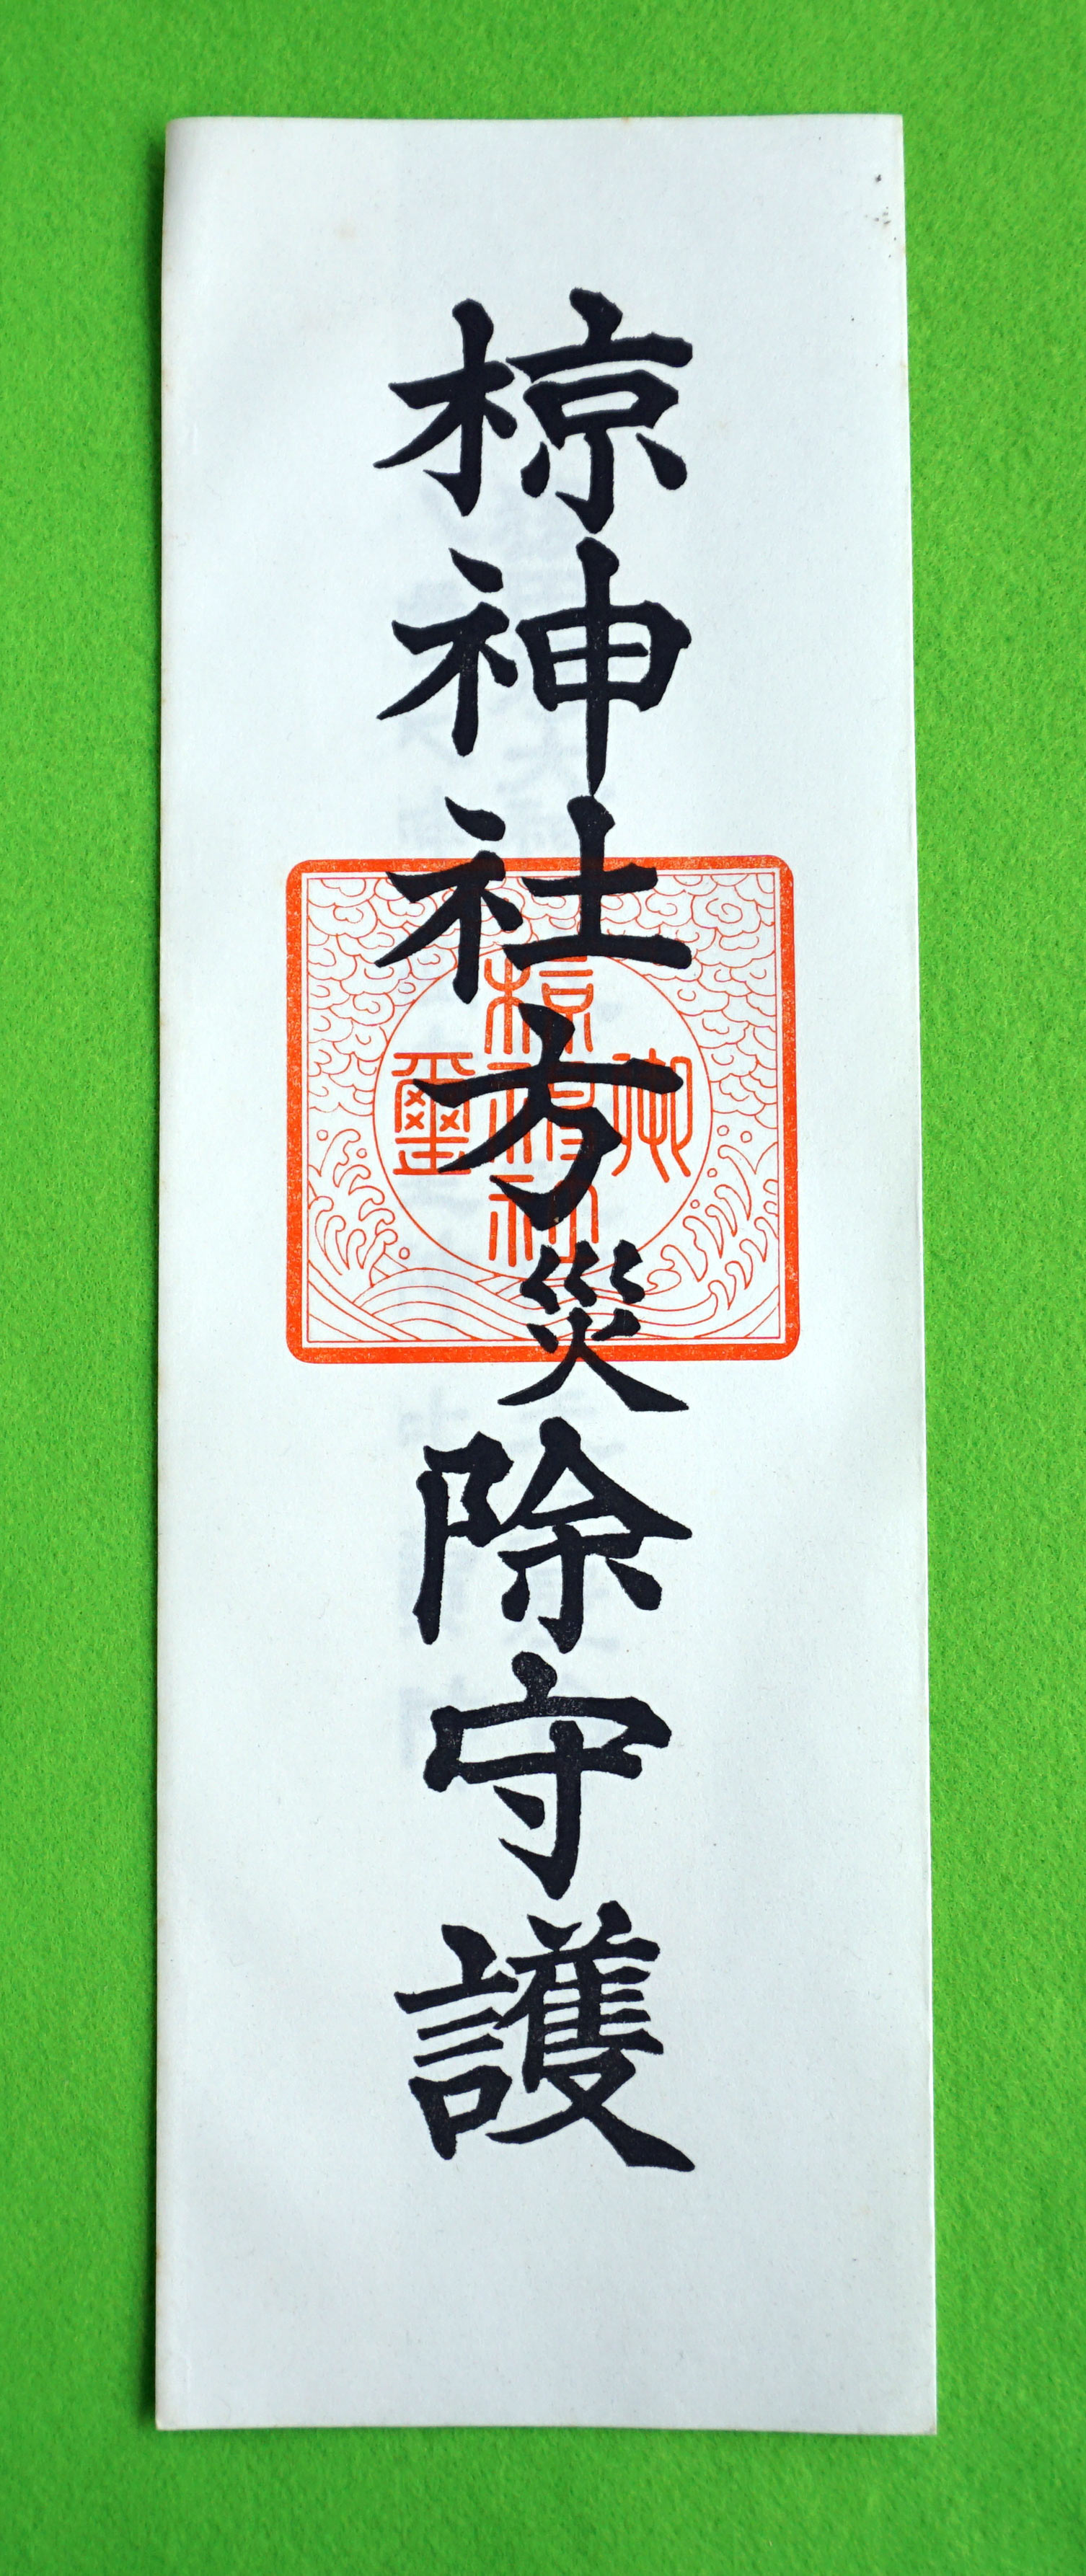 椋神社方災除守護
御
椋神社
璽